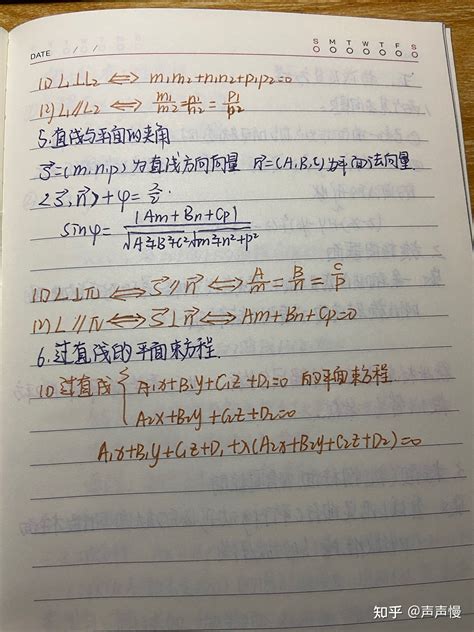 S M T W T F S
DATE / /
(1) L₁⊥L₂ ⟺ m₁m₂+n₁n₂+p₁p₂=0
(2) L₁∥L₂ ⟺ m₁/m₂=n₁/n₂=p₁/p₂
5.直线与平面的夹角
s⃗=(m,n,p)为直线方向向量 n⃗=(A,B,C)为平面法向量
<s⃗,n⃗>+φ=π/2.
sinφ=|Am+Bn+Cp|/√A²+B²+C²√m²+n²+p²
(1) L⊥π ⟺ s⃗∥n⃗ ⟺ A/m=B/n=C/p
(2) L∥π ⟺ s⃗⊥n⃗ ⟺ Am+Bn+Cp=0
6.过直线的平面束方程.
(1)过直线{A₁x+B₁y+C₁z+D₁=0 的平面束方程.
A₂x+B₂y+C₂z+D₂=0
A₁x+B₁y+C₁z+D₁+λ(A₂x+B₂y+C₂z+D₂)=0
知乎 @声声慢